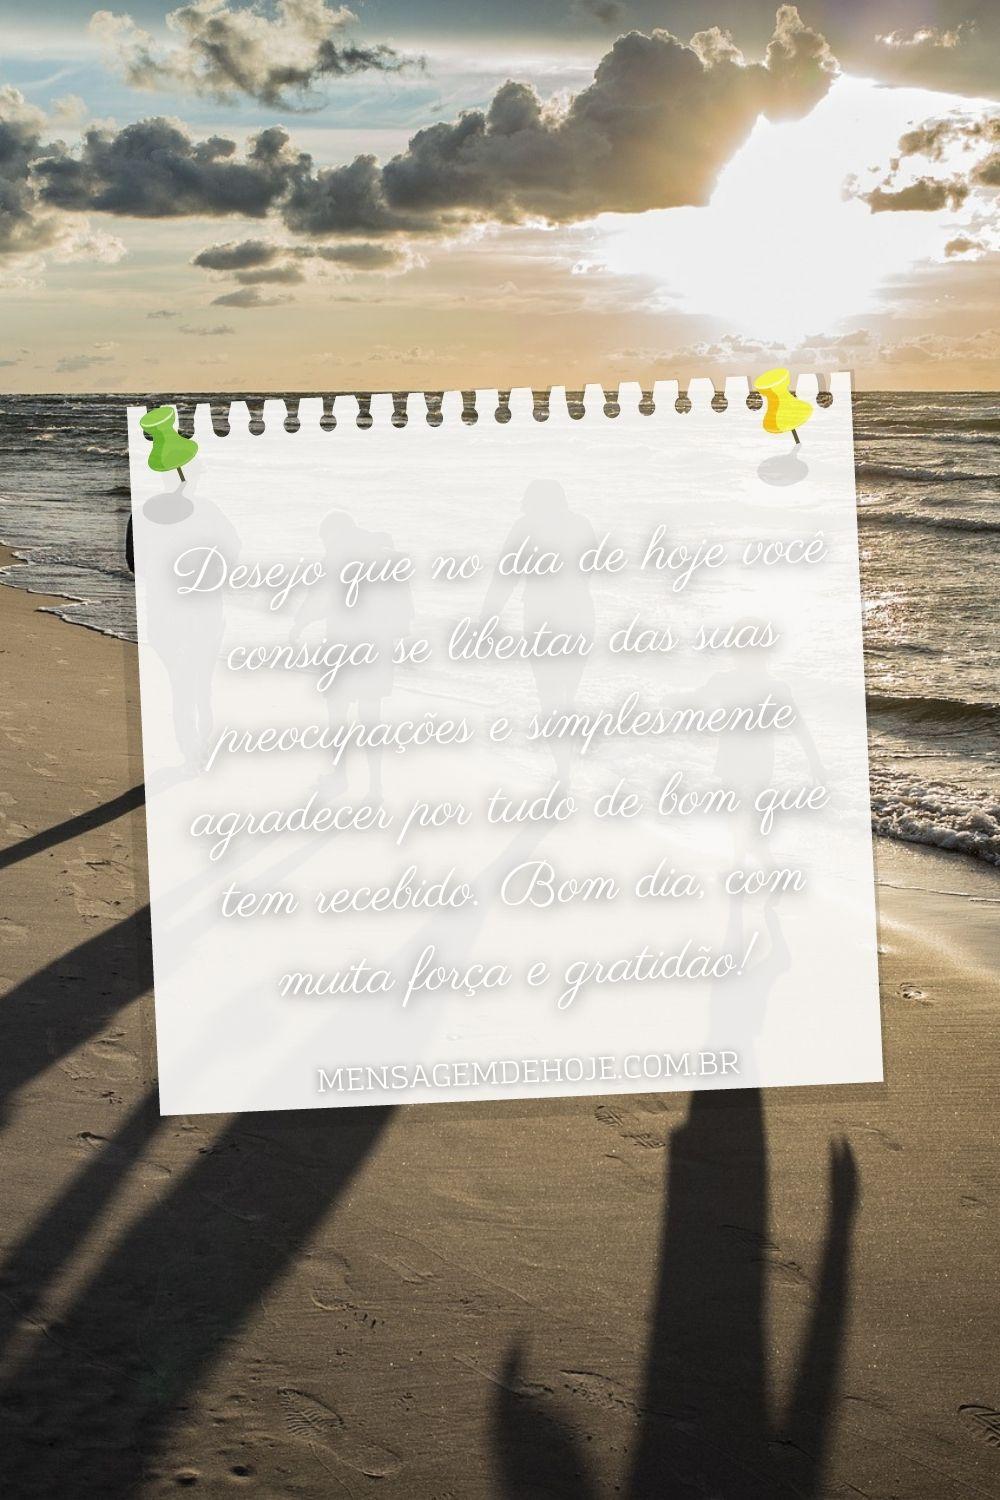 Desejo que no dia de hoje você
consiga se libertar das suas
preocupações e simplesmente
agradecer por tudo de bom que
tem recebido. Bom dia, com
muita força e gratidão!
MENSAGEMDEHOJE.COM.BR